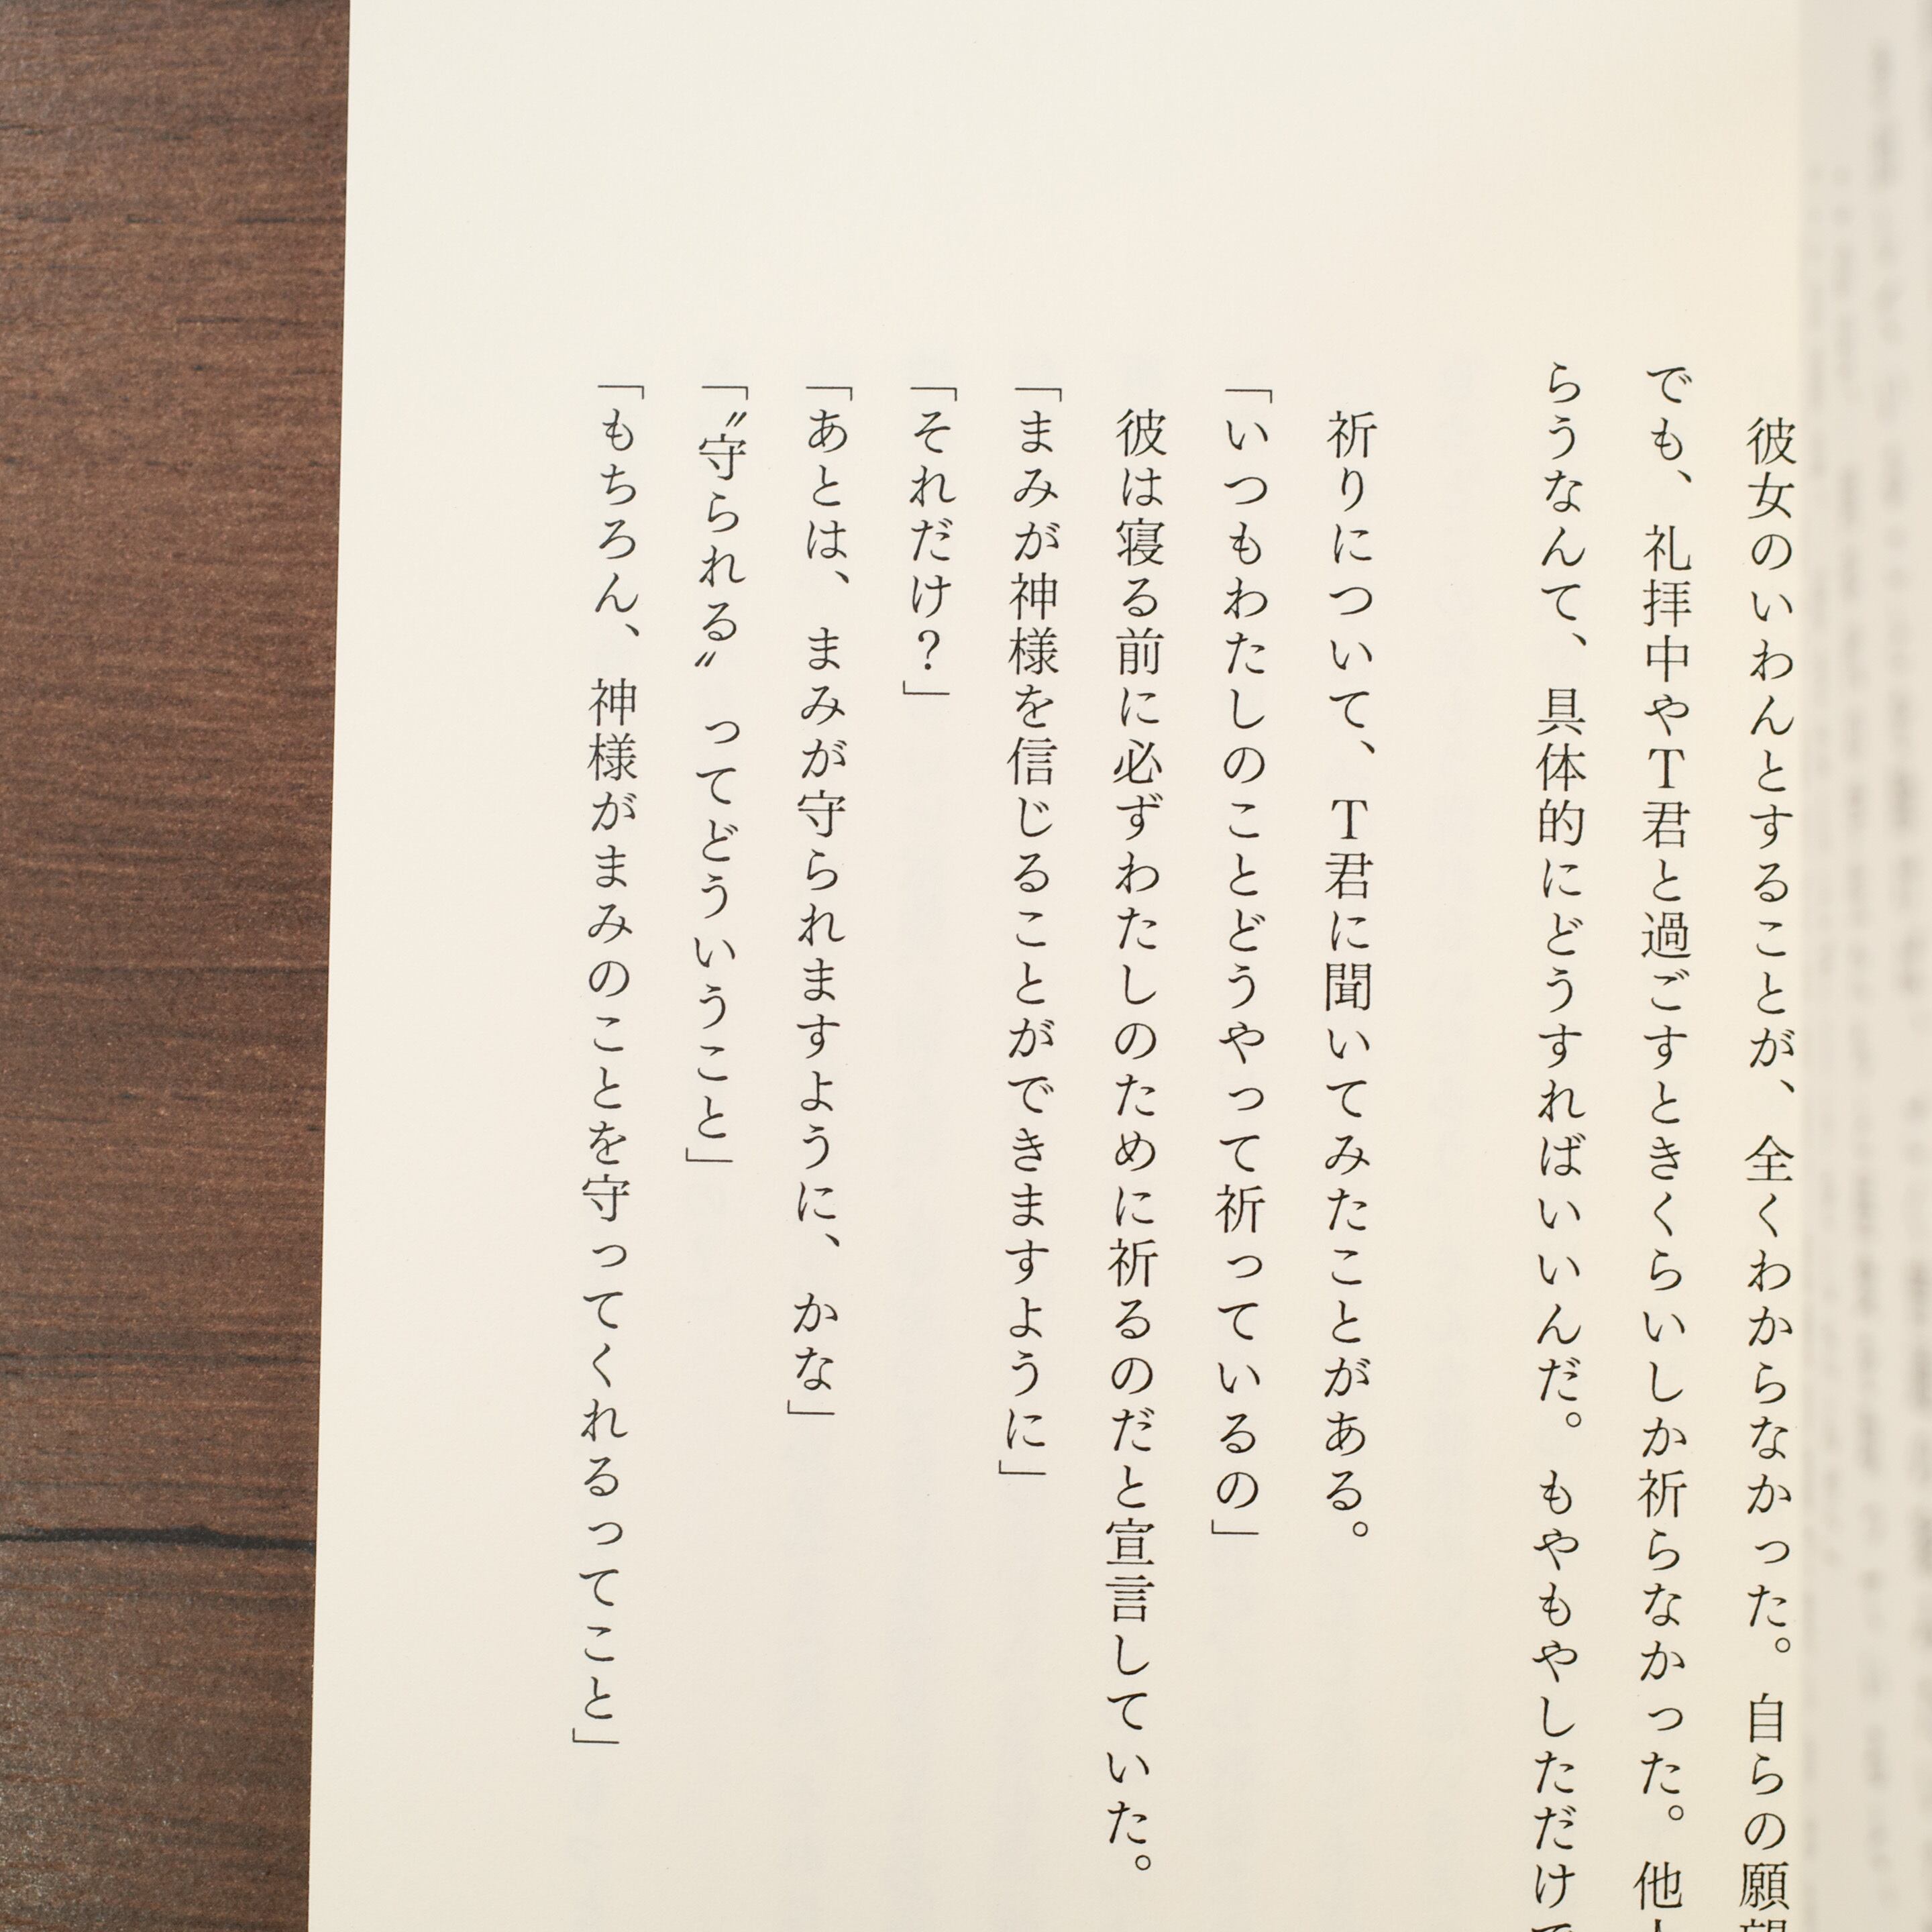 彼女のいわんとすることが、全くわからなかった。自らの願望
でも、礼拝中やT君と過ごすときくらいしか祈らなかった。他
らうなんて、具体的にどうすればいいんだ。もやもやしただけ
祈りについて、T君に聞いてみたことがある。
「いつもわたしのことどうやって祈っているの」
彼は寝る前に必ずわたしのために祈るのだと宣言していた。
「まみが神様を信じることができますように」
「それだけ？」
「あとは、まみが守られますように、かな」
「〝守られる〟ってどういうこと」
「もちろん、神様がまみのことを守ってくれるってこと」